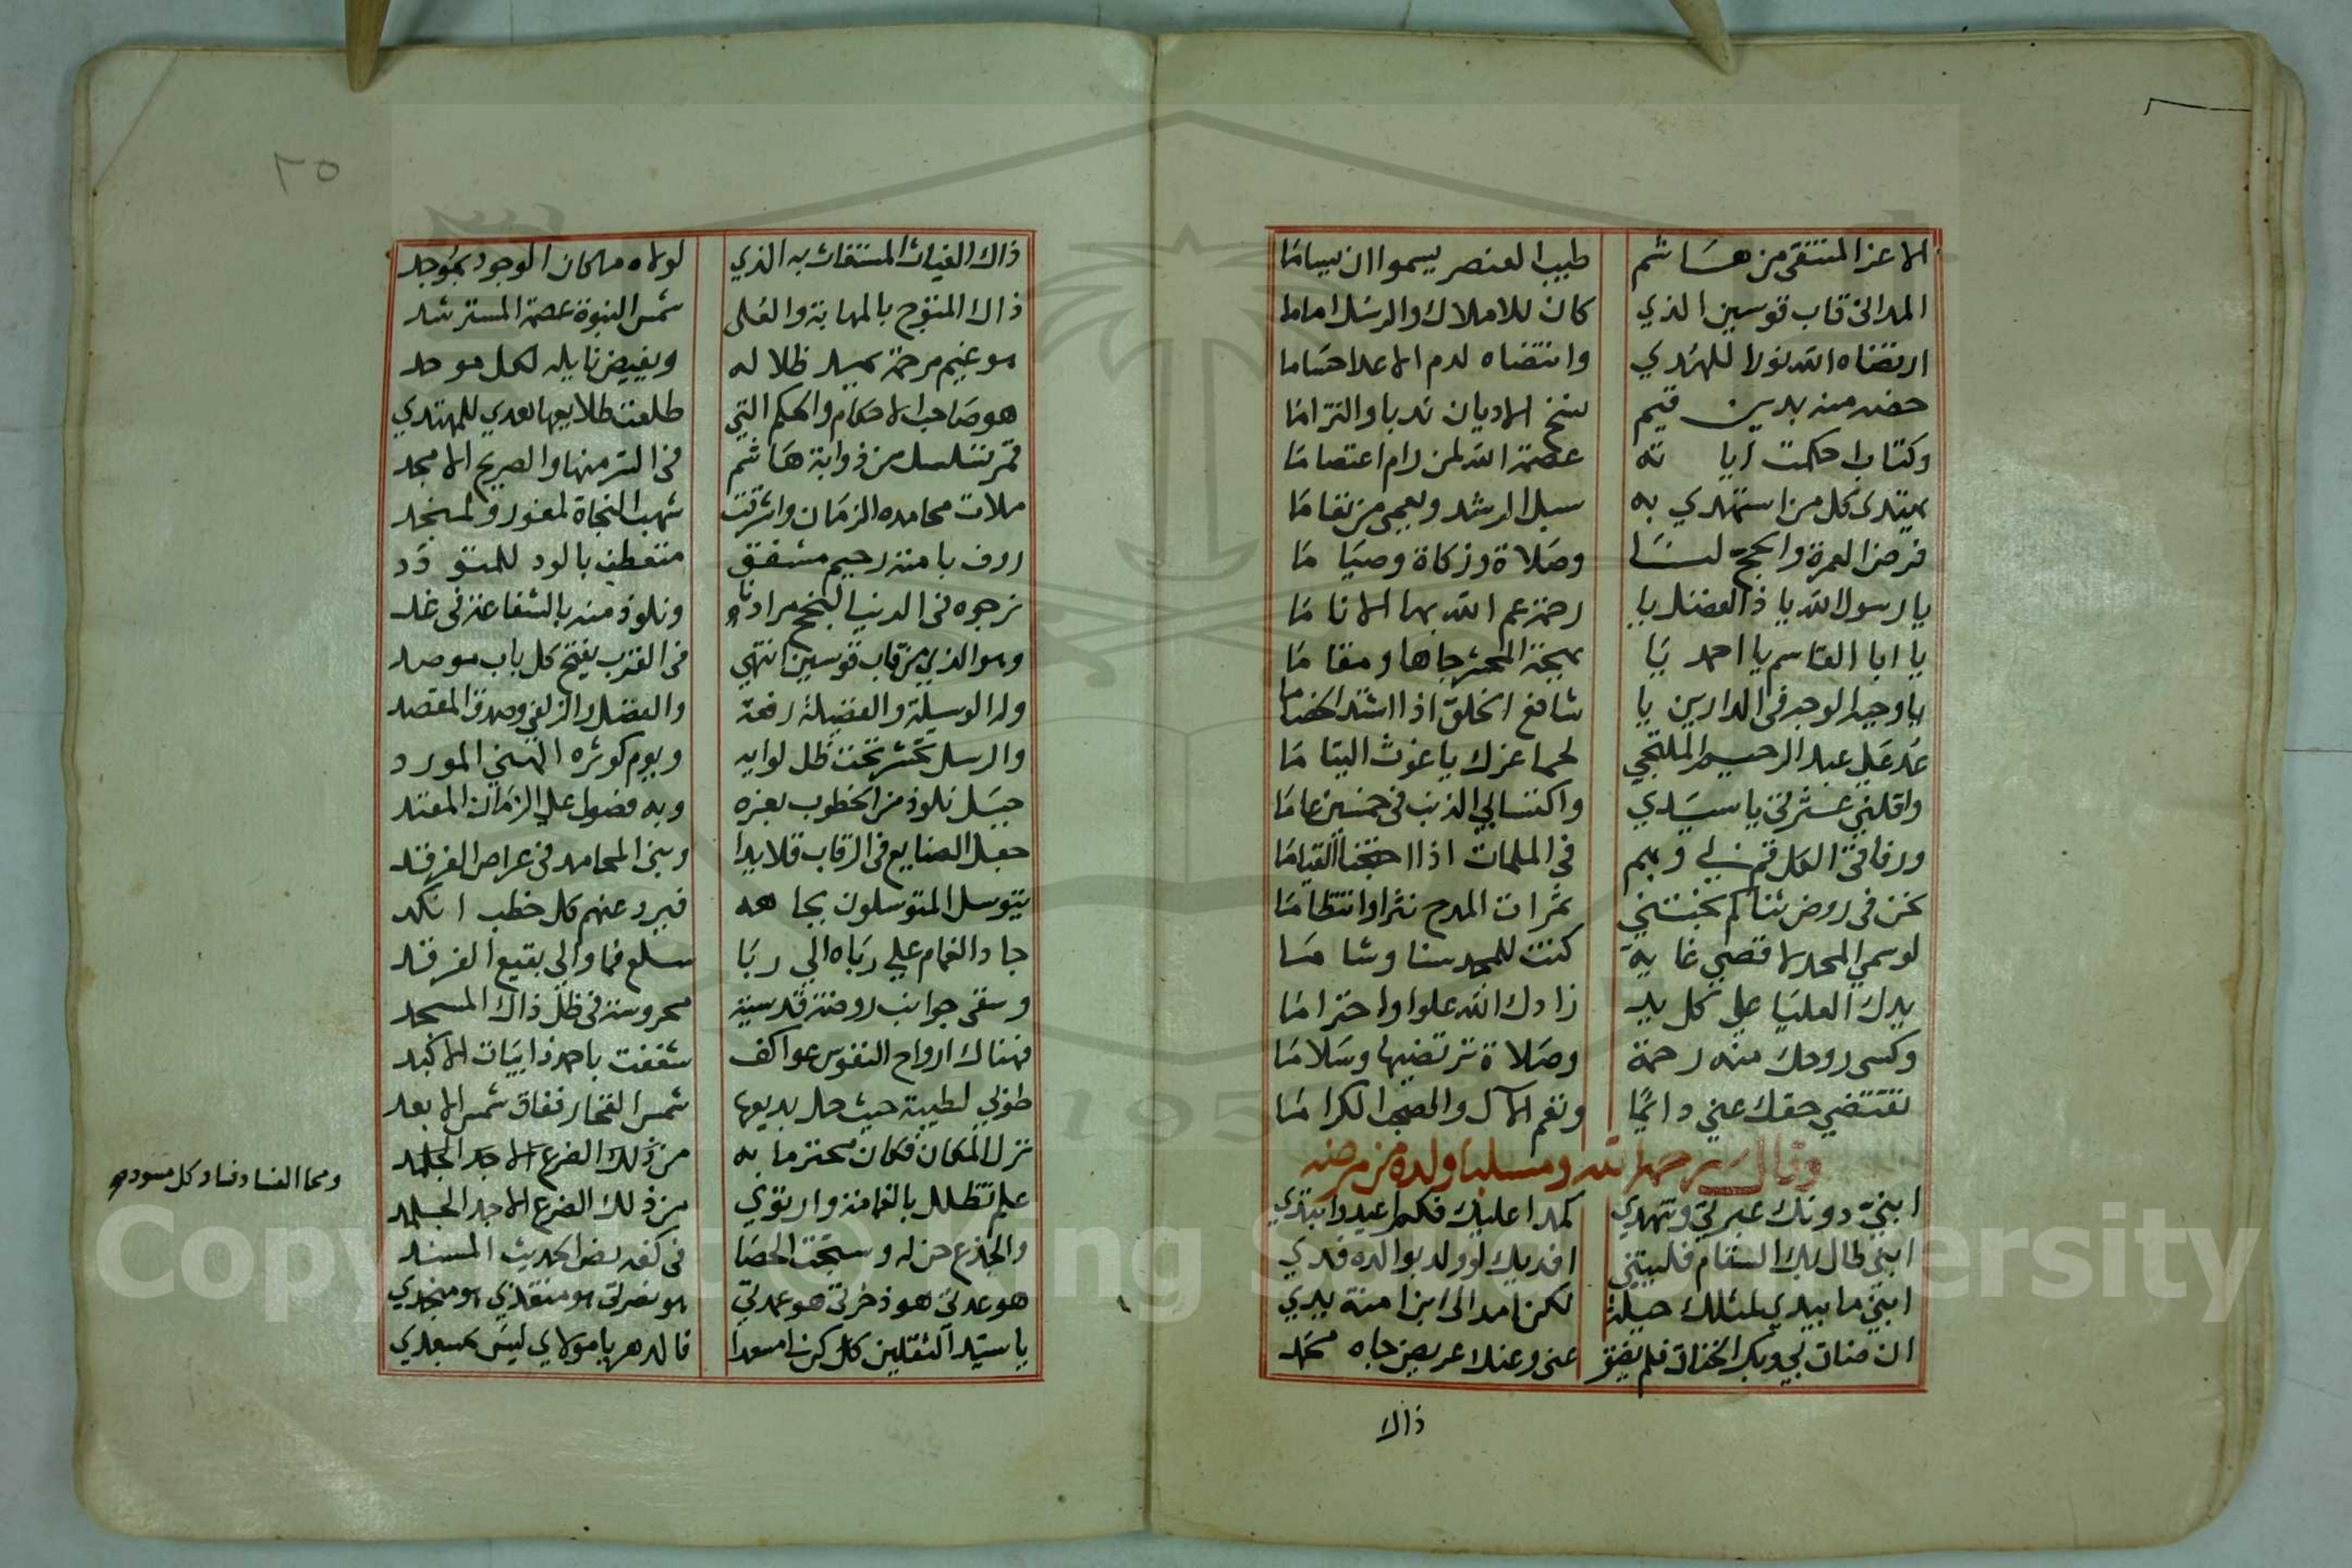 الاعز المنتقى من هاشم طيب العنصر يسموا ان يساما
المدانى قاب قوسين الذي كان للاملاك والرسل اماما
ارتضاه الله نورا للهدي وانتضاه لدم الاعدا حساما
خصه منه بدين قيم ينسخ الاديان ندبا والتزاما
وكتاب احكمت ايا ته عصمة الله لمن رام اعتصاما
يهتدى كل من استهدي به سبل الرشد ويعمى من تعاما
فرض العمرة والحج لنا وصلاة وزكاة وصيا ما
يا رسول الله يا ذا الفضل يا رحمة عم الله بها الانا ما
يا ابا القاسم يا احمد يا بهجة المحشر جاها ومقا ما
يا وجيه الوجه فى الدارين يا شافع الخلق اذا اشتد الخصاما
عد على عبد الرحيم الملتجي لحما عزك يا غوث اليتا ما
واقلني عثرتى يا سيدي واكتسابي الذنب فى خمسين عاما
ورفاقتى الكل قم بي وبهم في الملمات اذا احتجنا القياما
نحن فى روض ثناكم نجتني ثمرات المدح نثرا وانتظاما
لو سمي المجد لاقصي غاية كنت للمجد سنا وشا ما
يدك العليا على كل يد زادك الله علوا واحتراما
وكسى روحك منه رحمة وصلاة ترتضيها وسلاما
تقتضي حقك عني دائما وتعم الآل والصحب الكراما
وقال رحمه الله ومسليا ولده من مرضه
ابني دونك عبرتي وتنهدي كمدا عليك فكم اعيد وابتدي
ابني طال بك السقام فليتني افديك لو ولد بوالده فدي
ابني ما بيدي لمثلك حيلة لكن امد الى ابن امنة يدي
ان ضاق بي وبك الخناق فلم يضق عني وعنك عريض جاه محمد
ذاك
٢٥
ذاك الغياث المستغاث به الذي لولاه ما كان الوجود بموجد
ذاك المتوج بالمهابة والعلى شمس النبوة عصمة المسترشد
هو غيم مرحمة يميد ظلا له ويفيض نايله لكل موحد
هو صاحب الاحكام والحكم التي طلعت طلايعها لهدي للمهتدي
قمر تسلسل من ذوابة هاشم فى السر منها والصريح الامجد
ملات محامده الزمان واشرقت شهب النجاة لمغور ولمنجد
روف بامته رحيم مشفق متعطف بالود للمتو دد
نرجوه فى الدنيا لنجح مرادنا ونلوذ منه بالشفاعة فى غد
وهو الذي من قاب قوسين انتهي فى القرب يفتح كل باب موصد
وله الوسيلة والفضيلة رفعة والفضل والزلفى وصدق المقصد
والرسل تحشر تحت ظل لوايه ويوم كوثره الهني المورد
جبل نلوذ من الخطوب بعزه وبه فصول على الزمان المعتد
جعل الصنايع فى الرقاب قلايدا وبنى المحامد فى عراص الفرقد
يتوسل المتوسلون بجا هه فيرد عنهم كل خطب انكد
جاد الغمام على رباه الي ربا سلع فما والى بقيع الغرقد
وسقى جوانب روضة قدسية محروسة فى ظل ذاك المسجد
فهناك ارواح النفوس عواكف شغفت باحمد ذايبات الاكبد
طوبي لطيبة حيث حل بديعها شمس الفخار ففاق شمس الابعد
نزل المكان فكان محترما به من ذلك الضرع الاجد الجلمد
ومحا الفساد فساد كل مسود
علم تظلل بالغمامة وارتوي من ذلك الضرع الاجد الجلمد
والجذع حن له وسبحت الحصا فى كفه نص الحديث المسند
هو عدتى هو ذخرتى هو عمدتي هو نصرتى هو منقذي هو منجدي
يا سيد الثقلين كل كن امسعدا فالدهر يا مولاي ليس بمسعدي